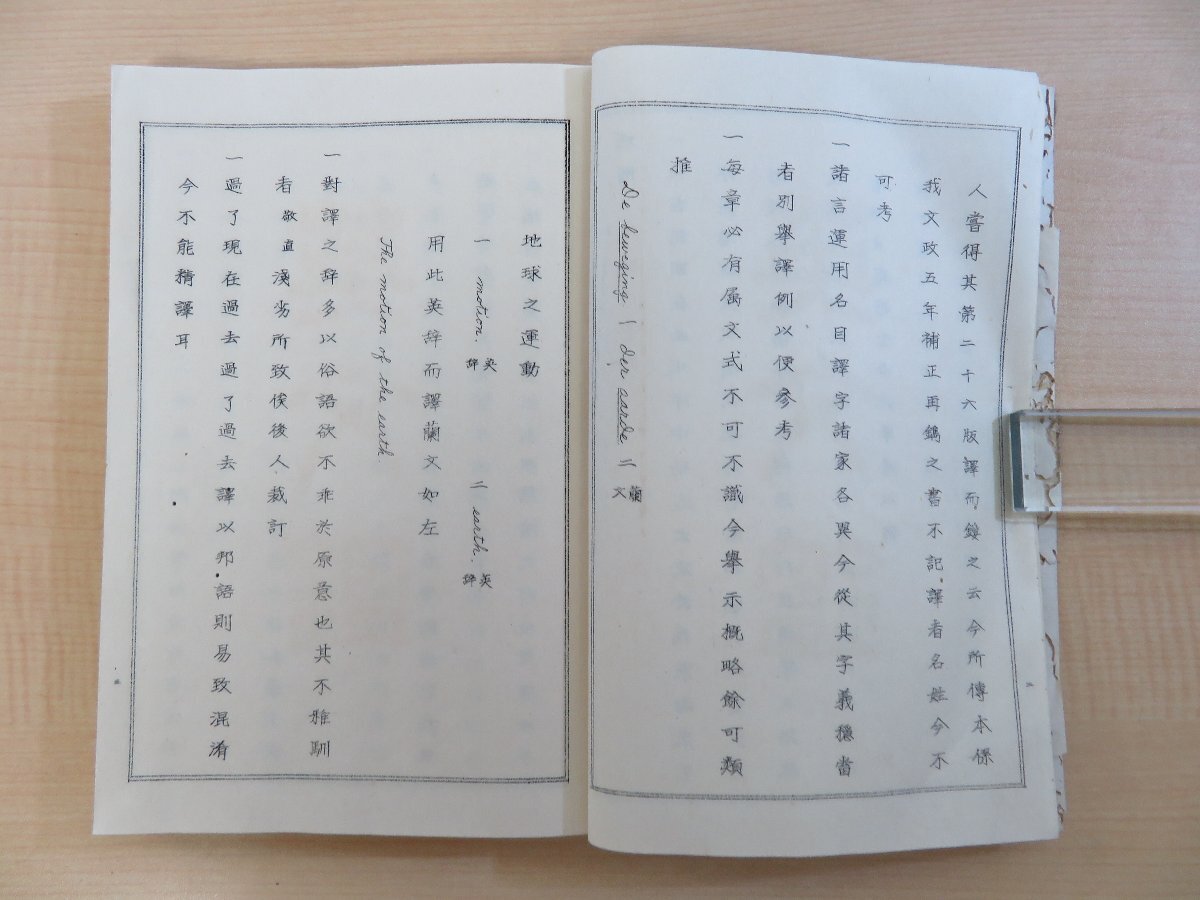 人嘗得其第二十六版譯而鏤之云今所傳本係
我文政五年補正再鐫之書不記譯者名姓今不
可考
一諸言運用名目譯字諸家各異今從其字義穩當
者別擧譯例以便參考
一每章必有属文式不可不識今擧示概略餘可類
推
De beweging 一 der aarde 二 蘭文
地球之運動
一 motion. 英辞 二 earth. 英辞
用此英辞而譯蘭文如左
The motion of the earth.
一對譯之辞多以俗語欲不乖於原意也其不雅馴
者敬直淺劣所致俟後人裁訂
一過了現在過去過了過去譯以邦語則易致混淆
今不能精譯耳